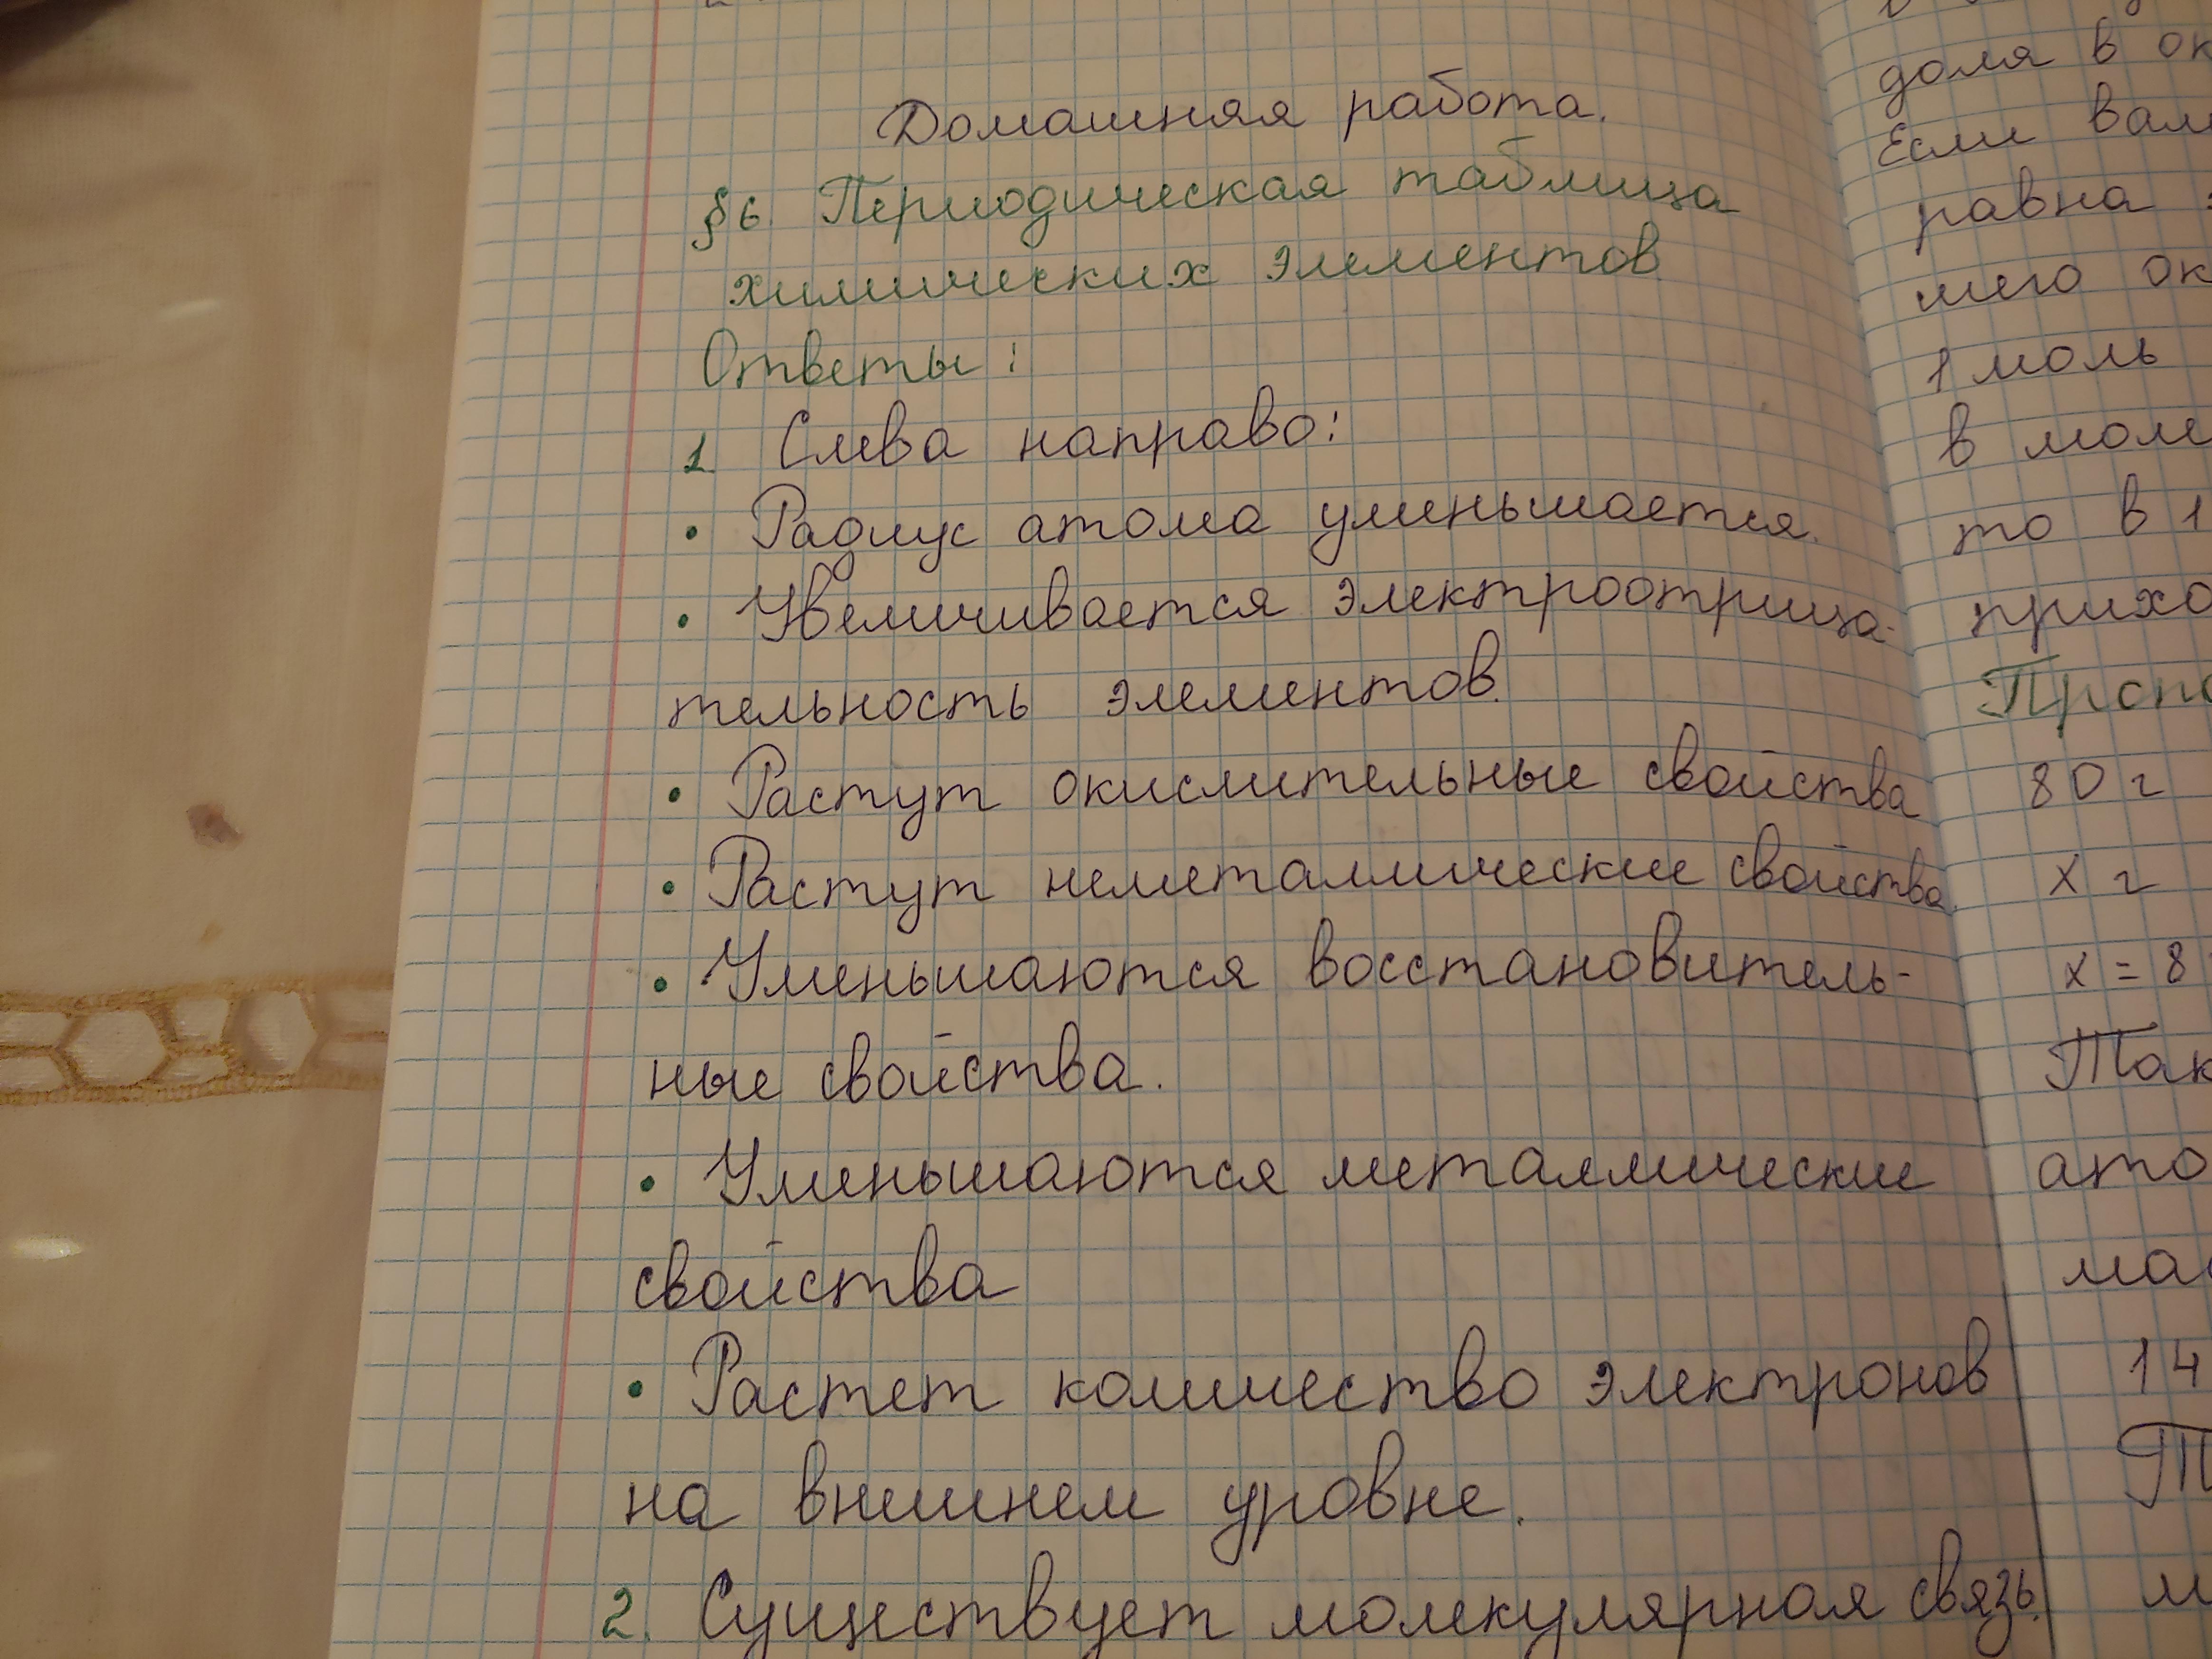 Домашняя работа.
§6. Периодическая таблица
химических элементов.
Ответы:
1. Слева направо:
• Радиус атома уменьшается.
• Увеличивается электроотрица-
тельность элементов.
• Растут окислительные свойства
• Растут неметаллические свойства.
• Уменьшаются восстановитель-
ные свойства.
• Уменьшаются металлические
свойства
• Растет количество электронов
на внешнем уровне.
2. Существует молекулярная связь.
доля в ок
Если вал
равна
шего ок
1 моль
в моле
то в 1
прихо
80 г
х г
х = 8
Так
ато
14